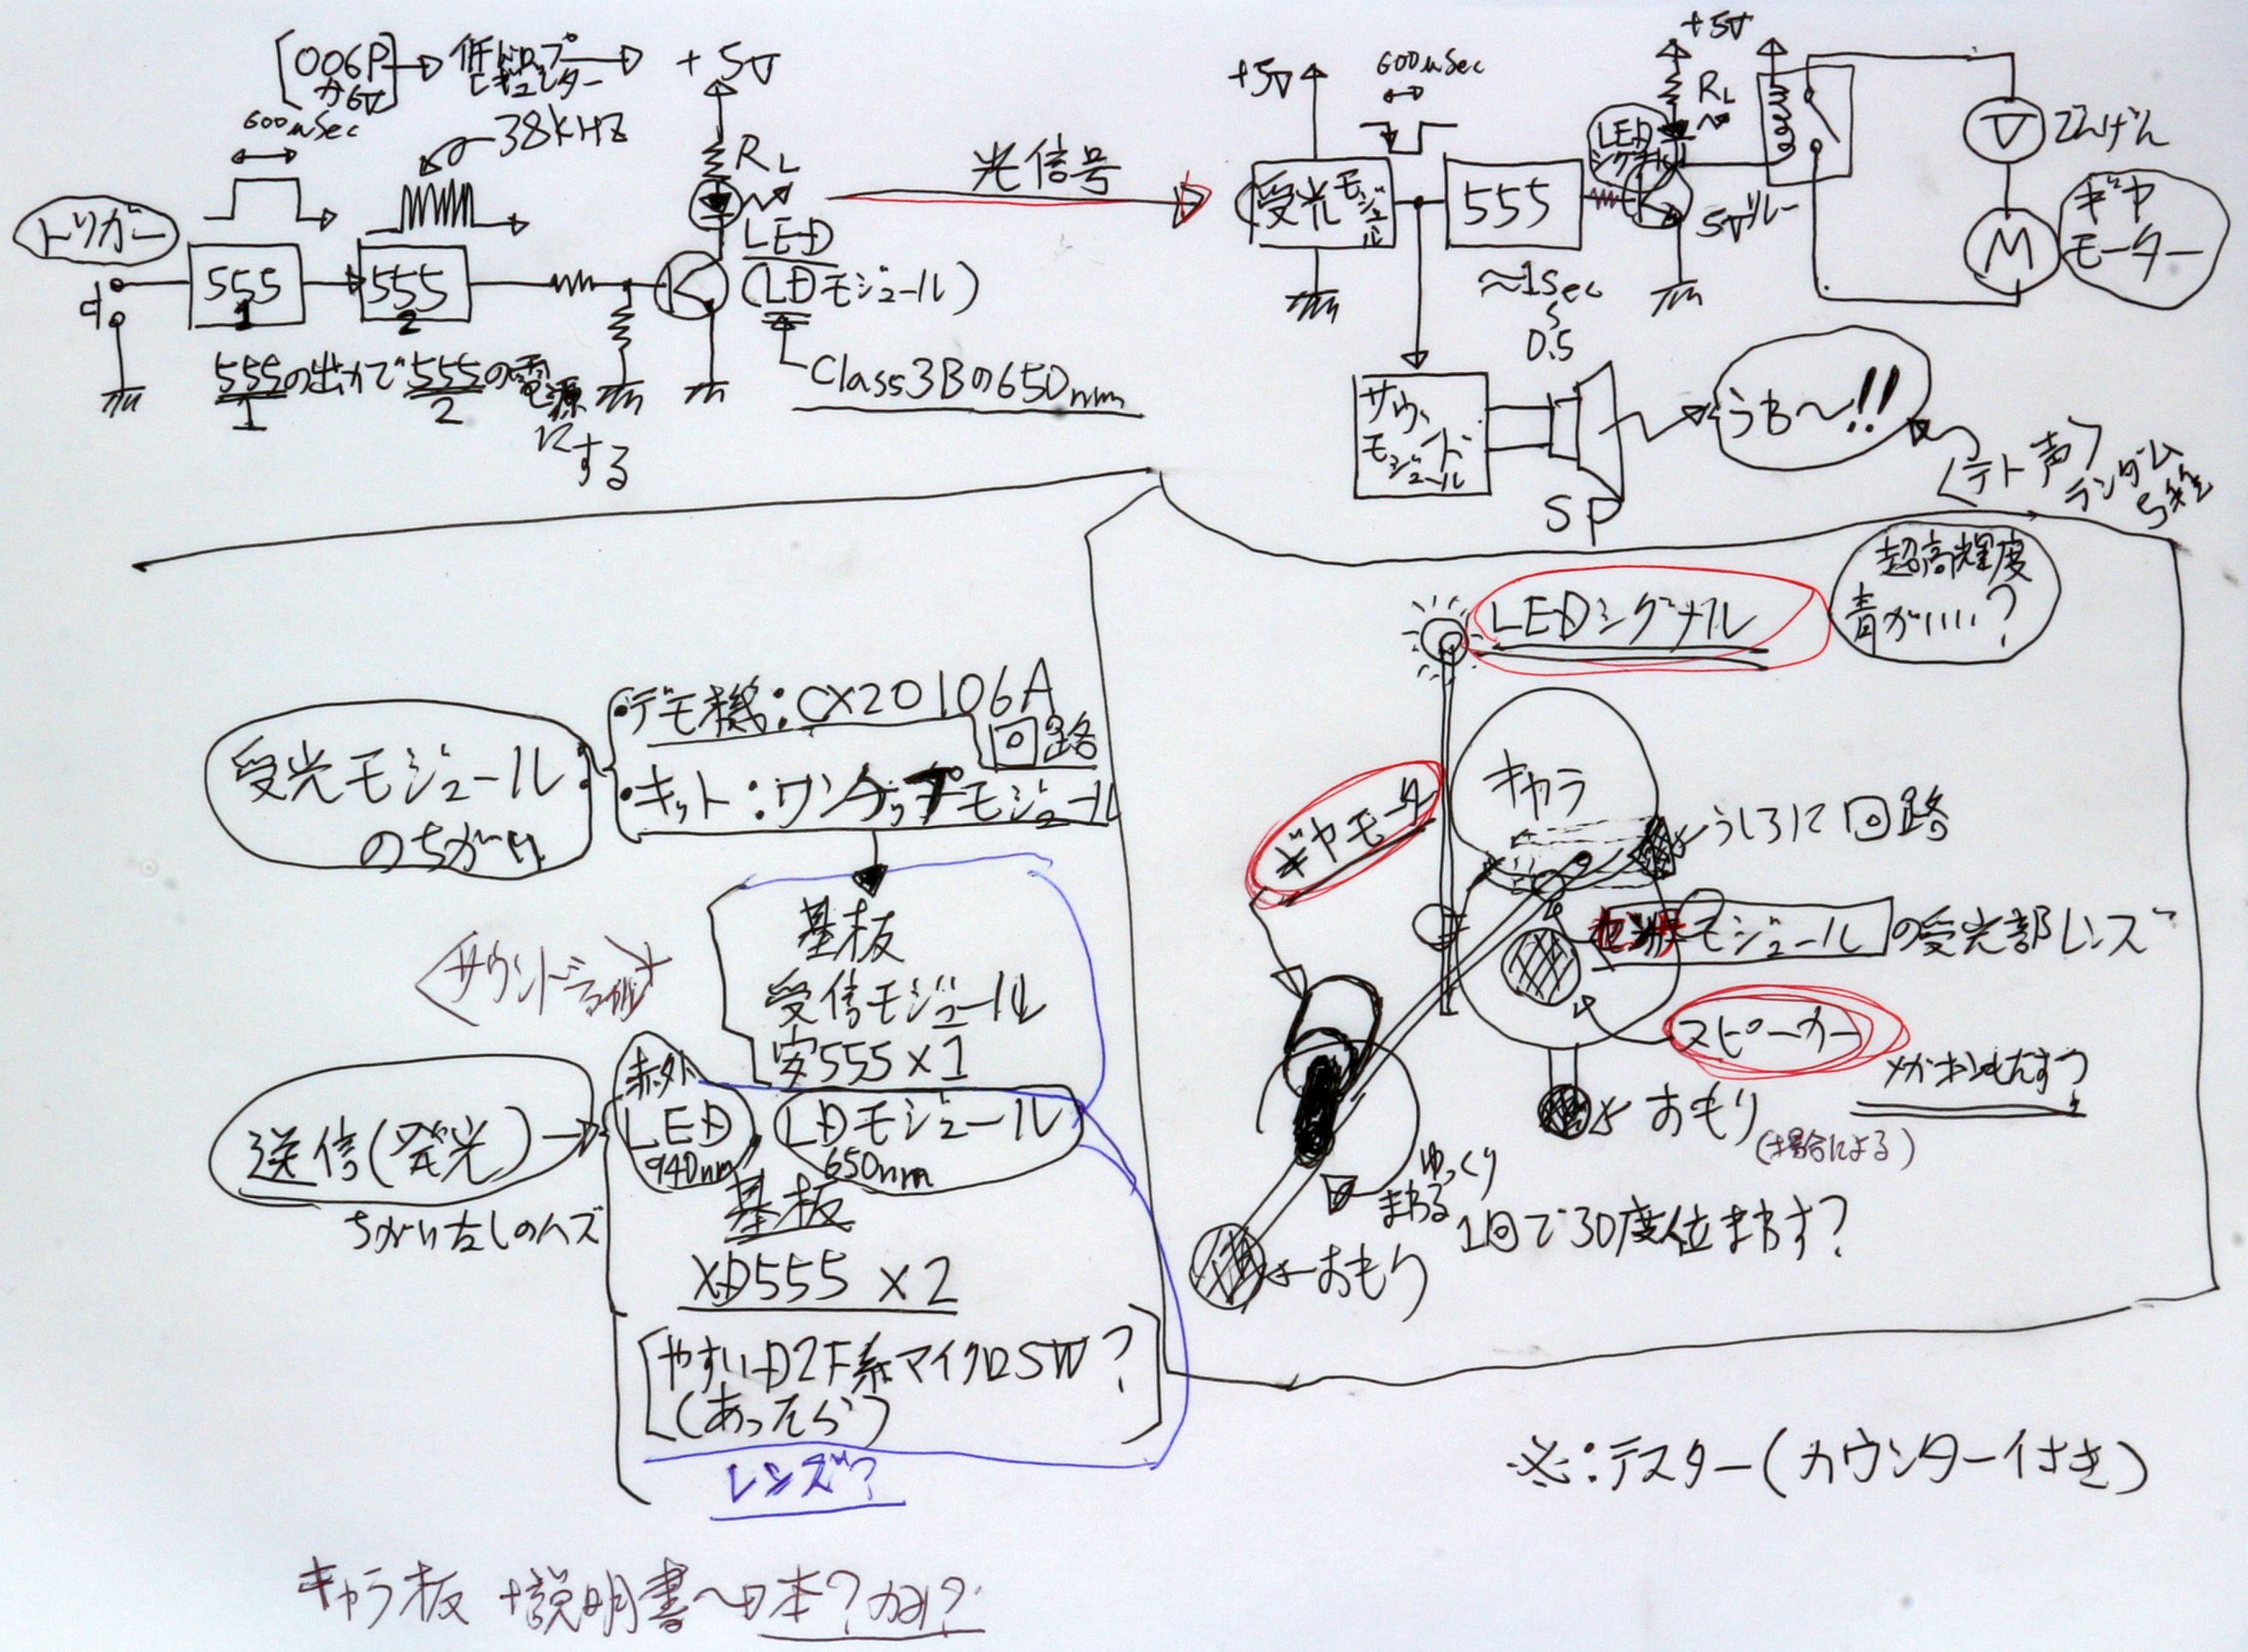 [006P
か6V]
低ドロップ
レギュレーター
600μSec
38KHZ
+5V
RL
トリガー
555
1
555
2
LED
(LDモジュール)
Class3Bの650nm
555の出力で555の電源
1 2
にする
光信号
+5V
600μSec
受光モジュール
555
≈1Sec
〜
0.5
LED
シグナル
+5V
RL
5Vリレー
V
でんげん
M
ギヤ
モーター
サウンド
モジュール
SP
うわ〜!!
<テト声>
ランダム
5種
受光モジュール
のちがい
・デモ機:CX20106A
回路
・キット:ワンチップモジュール
基板
受信モジュール
安555×1
送信(発光)
ちがいなしのハズ
赤外
LED
940nm
LDモジュール
650nm
基板
XD555 ×2
[やすいD2F系マイクロSW?
(あったら)]
レンズ?
LEDシグナル
超高輝度
青がいい?
キャラ
ギヤモータ
うしろに回路
モジュールの受光部レンズ
スピーカー
おもり
(場合による)
ゆっくり
まわる
1回で30度位まわす?
おもり
※:テスター(カウンター付き)
キャラ板 +説明書〜日本?